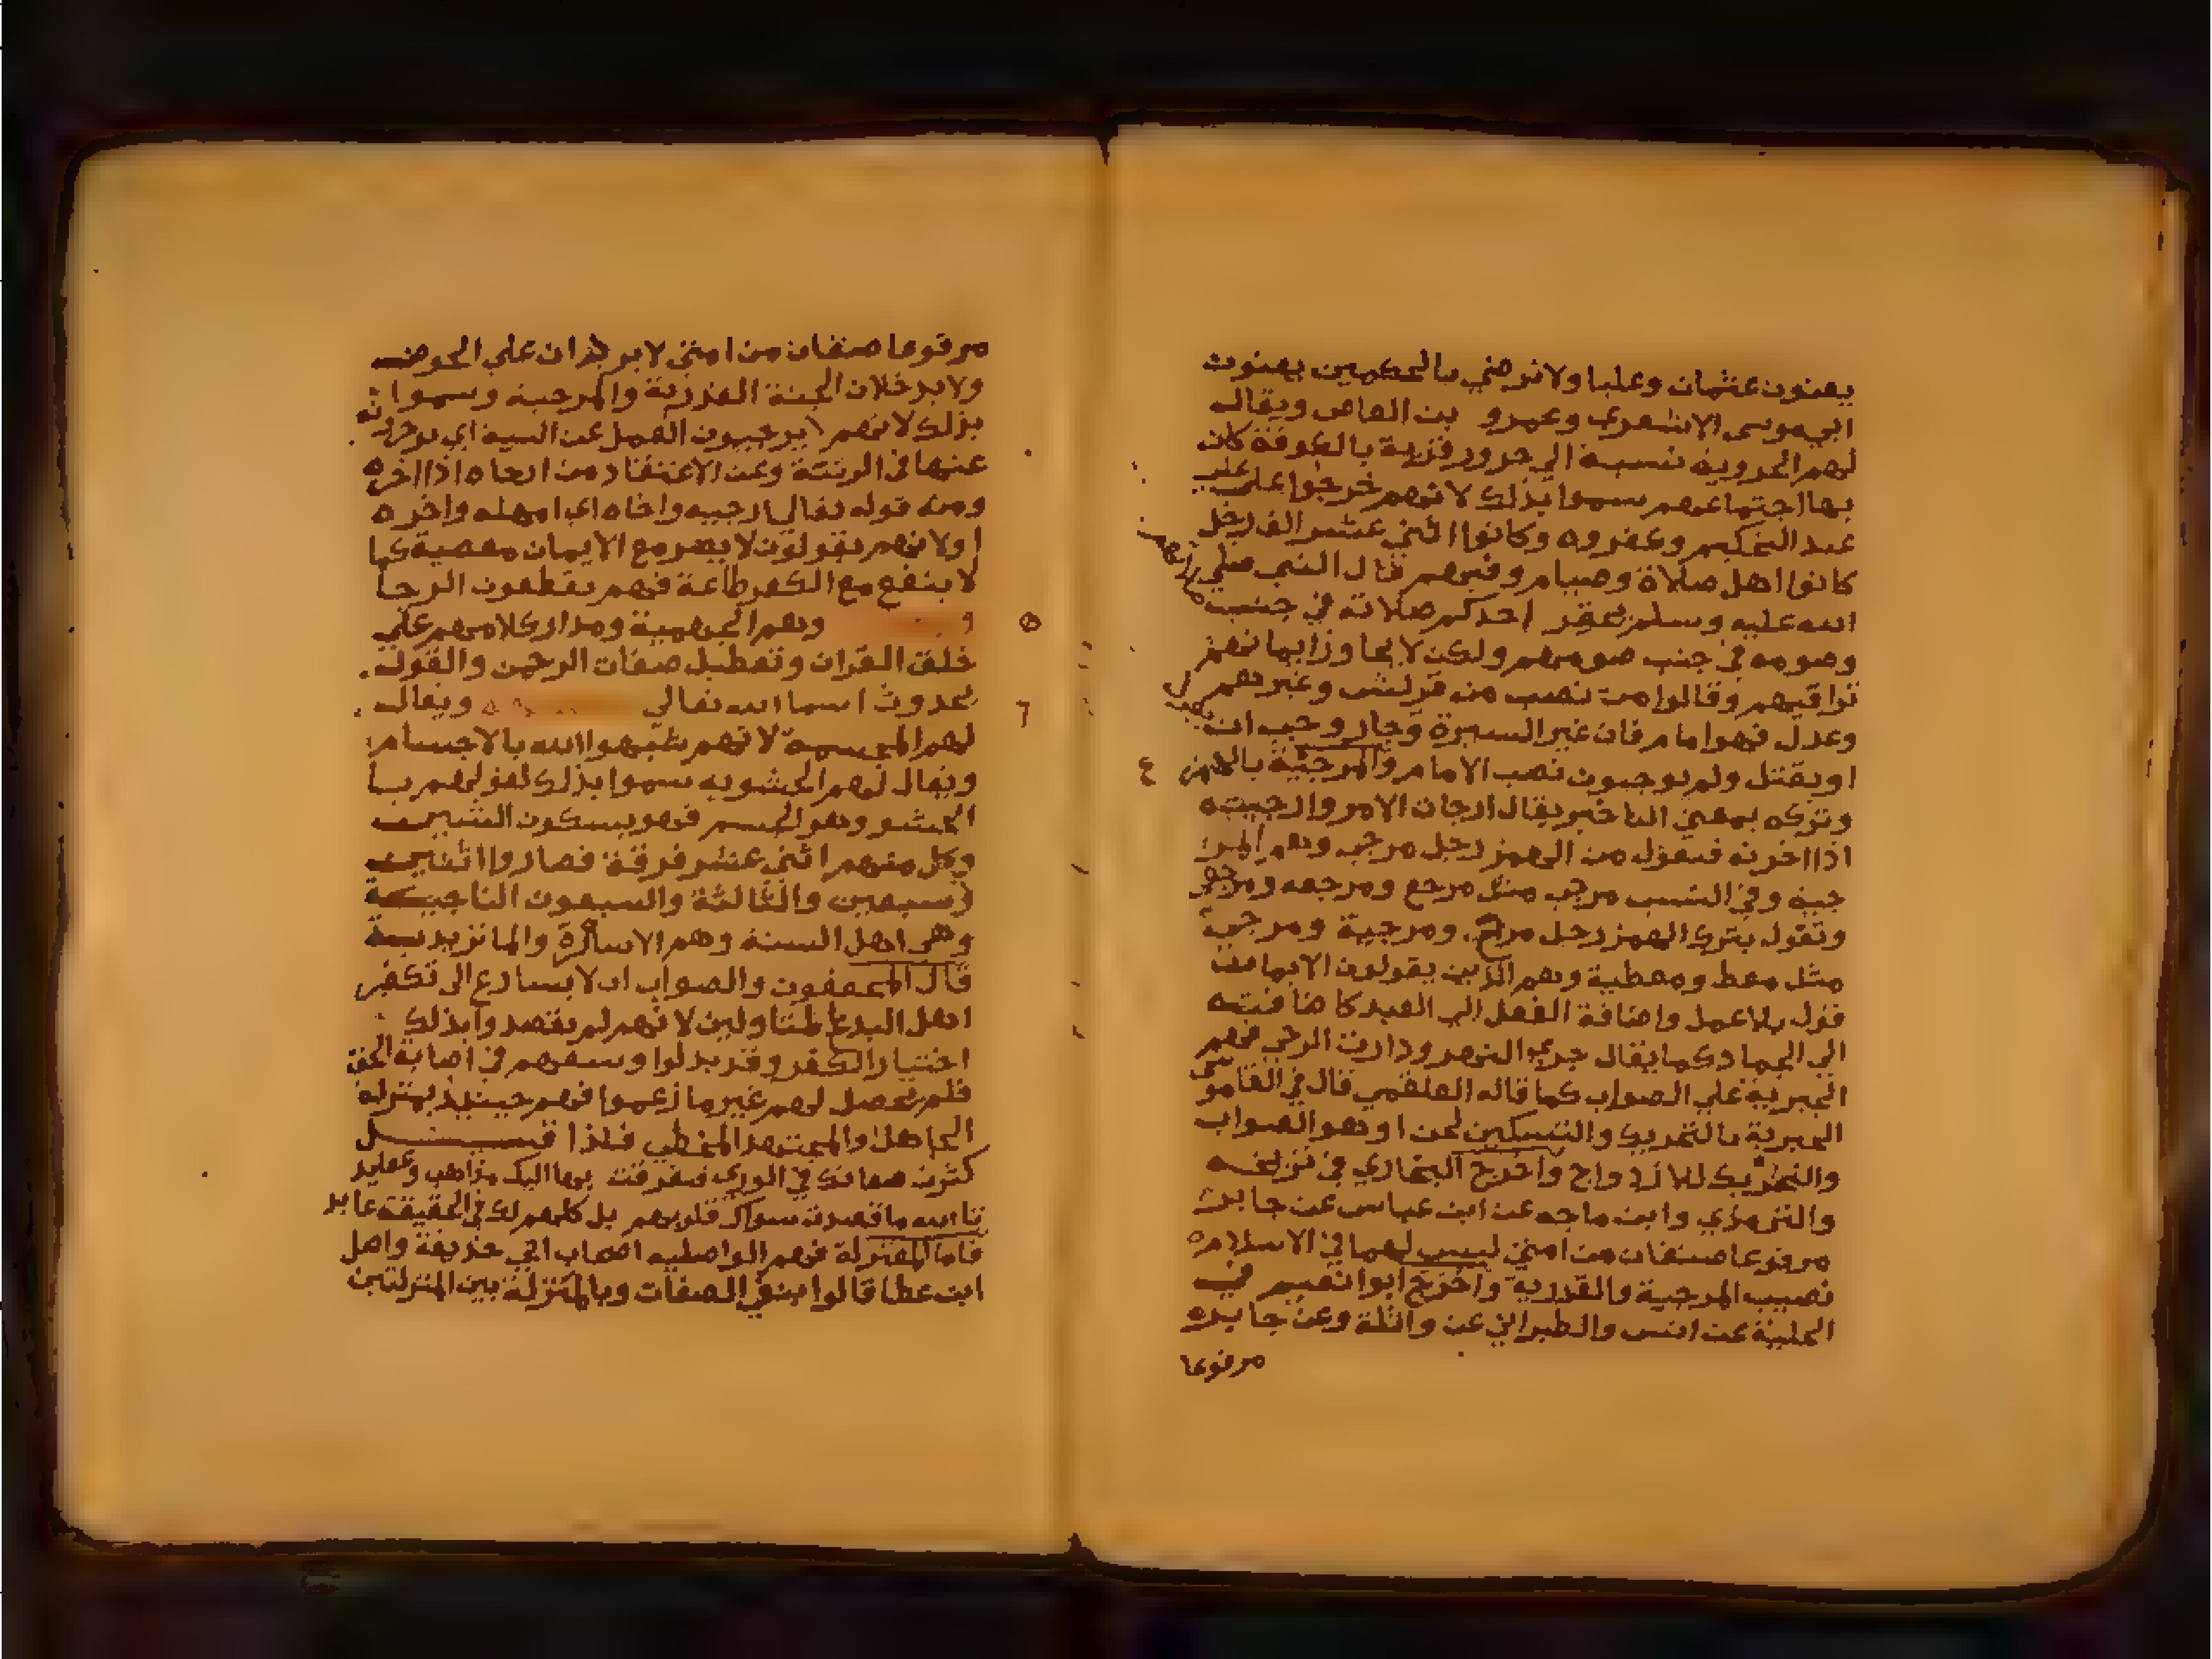 يعنون عثمان وعليا ولا نرضي بالحكمين يعنون
ابي موسى الاشعري وعمرو بن العاص ويقال
لهم الحروية نسبة الي حرور قرية بالكوفة كان
بها اجتماعهم سموا بذلك لانهم خرجوا على علي
عند التحكيم وكفروه وكانوا اثني عشر الف رجل
كانوا اهل صلاة وصيام وفيهم قال النبي صلي
الله عليه وسلم يحقر احدكم صلاته في جنب
وصومه في جنب صومهم ولكن لا يجاوز ايمانهم
تراقيهم وقالوا من نصب من قريش وغيرهم
وعدل فهو امام فان غير السيرة وجار وجب ان
او يقتل ولم يوجبون نصب الامام والمرجئة بالهمز
وتركه بمعني التاخير يقال ارجات الامر وارجيته
اذا اخرته فتقول من الهمز رجل مرجي وهم المر
جية وفي النسب مرجي مثل مرجع ومرجعه
وتقول بترك الهمز رجل مرج ومرجية ومرجي
مثل معط ومعطية وهم الذين يقولون الايمان
قول بلا عمل واضافة الفعل الي العبد كاضافته
الي الجماد كما يقال جري النهر ودارت الرحي فهم
الجبرية علي الصواب كما قاله العلقمي قال في القاموس
الجبرية بالتحريك والتسكين لحن او هو الصواب
والتحريك للازدواج واخرج البخاري في تاريخه
والترمذي وابن ماجه عن ابن عباس عن جابر
مرفوعا صنفان من امتي ليس لهما في الاسلام
نصيب المرجية والقدرية واخرج ابوا نعيم في
الحلية عن انس والطبراني عن واثلة وعن جابر
مرفوعا
٤
مرفوعا صنفان من امتي لا يردان علي الحوض
ولا يدخلان الجنة القدرية والمرجية وسموا
بذلك لانهم يرجيون العمل عن النية اي يوخرونه
عنها في الرتبة وعن الاعتقاد من ارجاه اذا اخره
ومنه قوله تعالى ارجيه واخاه اي امهله واخره
او لانهم يقولون لا يضر مع الايمان معصية كما
لا ينفع مع الكفر طاعة فهم يقطعون الرجا
و وهم الجهمية ومدار كلامهم علي
خلق القران وتعطيل صفات الرحمن والقول
بحدوث اسما الله تعالي ويقال
لهم المجسمة لانهم شبهوا الله بالاجسام
ويقال لهم الحشويه سموا بذلك لقولهم با
الحشو وهو الجسم فهو بسكون الشين
وكل منهم اثني عشر فرقة فصاروا اثنين
وسبعين والثالثة والسبعون الناجية
وهي اهل السنة وهم الاساعرة والماتريدية
قال المحققون والصواب ان لا يسارع الى تكفير
اهل البدع المتاولين لانهم لم يقصدوا بذلك
اختيار الكفر وقد بدلوا وسعهم في اصابة الحق
فلم يحصل لهم غير ما زعموا فهم حينيذ بمنزلة
الجاهل والمجتهد المخطي فلذا قيل
كثرت صفاتك في الوري فتفرقت بها اليك مذاهب وعقايد
تالله ما قصدت سواك قلوبهم بل كلهم لك في الحقيقة عابد
فاما المعتزلة فهم الواصليه اصحاب ابي حذيفة واصل
ابن عطا قالوا بنفي الصفات وبالمنزلة بين المنزلتين
٥
٦